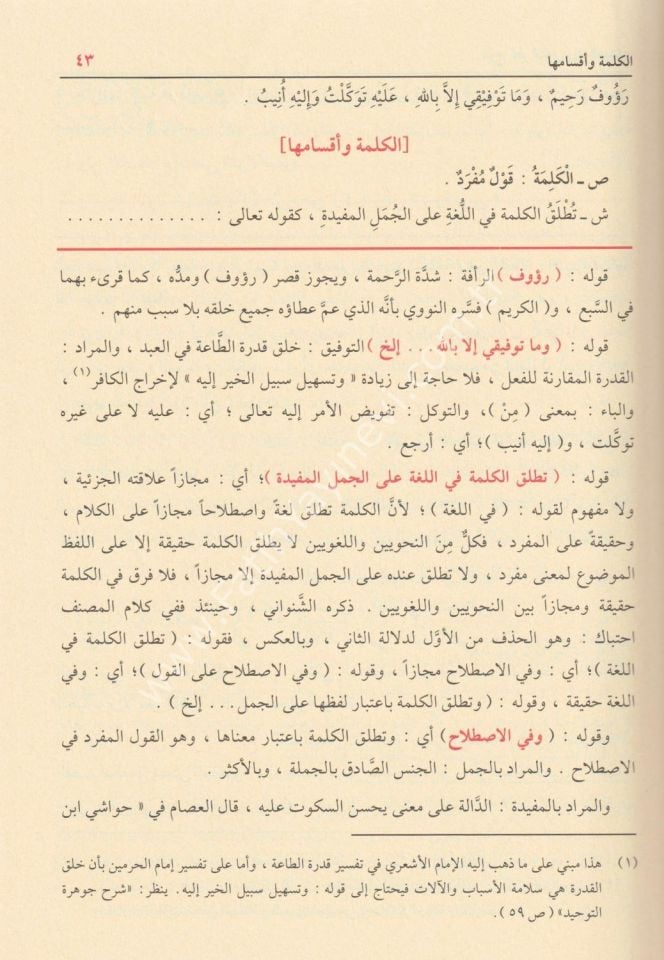 الكلمة وأقسامها ٤٣
رَؤُوفٌ رَحِيمٌ ، وَمَا تَوْفِيْقِي إِلاَّ بِاللهِ ، عَلَيْهِ تَوَكَّلْتُ وَإِلَيْهِ أُنِيبُ .
[الكلمة وأقسامها]
ص ـ الْكَلِمَةُ : قَوْلٌ مُفْرَدٌ .
ش ـ تُطْلَقُ الكلمة في اللُّغةِ على الجُمَلِ المفيدةِ ، كقوله تعالى : . . . . . . . . . . . . . .
قوله : ( رؤوف ) الرأفة : شدَّة الرَّحمة ، ويجوز قصر ( رؤوف ) ومدُّه ، كما قرىء بهما
في السَّبع ، و( الكريم ) فسَّره النووي بأنَّه الذي عمَّ عطاؤه جميع خلقه بلا سبب منهم .
قوله : ( وما توفيقي إلا بالله . . . إلخ ) التوفيق : خلق قدرة الطَّاعة في العبد ، والمراد :
القدرة المقارنة للفعل ، فلا حاجة إلى زيادة « وتسهيل سبيل الخير إليه » لإخراج الكافر(١) ،
والباء : بمعنى ( مِنْ )، والتوكل : تفويض الأمر إليه تعالى ؛ أي : عليه لا على غيره
توكَّلت ، و( إليه أنيب )؛ أي : أرجع .
قوله : ( تطلق الكلمة في اللغة على الجمل المفيدة )؛ أي : مجازاً علاقته الجزئية ،
ولا مفهوم لقوله : ( في اللغة )؛ لأنَّ الكلمة تطلق لغةً واصطلاحاً مجازاً على الكلام ،
وحقيقةً على المفرد ، فكلٌّ مِنَ النحويين واللغويين لا يطلق الكلمة حقيقة إلا على اللفظ
الموضوع لمعنى مفرد ، ولا تطلق عنده على الجمل المفيدة إلا مجازاً ، فلا فرق في الكلمة
حقيقة ومجازاً بين النحويين واللغويين . ذكره الشَّنواني ، وحينئذ ففي كلام المصنف
احتباك : وهو الحذف من الأوَّل لدلالة الثاني ، وبالعكس ، فقوله : ( تطلق الكلمة في
اللغة )؛ أي : وفي الاصطلاح مجازاً ، وقوله : ( وفي الاصطلاح على القول )؛ أي : وفي
اللغة حقيقة ، وقوله : ( وتطلق الكلمة باعتبار لفظها على الجمل . . . إلخ ) .
وقوله : ( وفي الاصطلاح) أي : وتطلق الكلمة باعتبار معناها ، وهو القول المفرد في
الاصطلاح . والمراد بالجمل : الجنس الصَّادق بالجملة ، وبالأكثر .
والمراد بالمفيدة : الدَّالة على معنى يحسن السكوت عليه ، قال العصام في « حواشي ابن
(١) هذا مبني على ما ذهب إليه الإمام الأشعري في تفسير قدرة الطاعة ، وأما على تفسير إمام الحرمين بأن خلق
القدرة هي سلامة الأسباب والآلات فيحتاج إلى قوله : وتسهيل سبيل الخير إليه. ينظر: «شرح جوهرة
التوحيد» ( ص ٥٩ ).